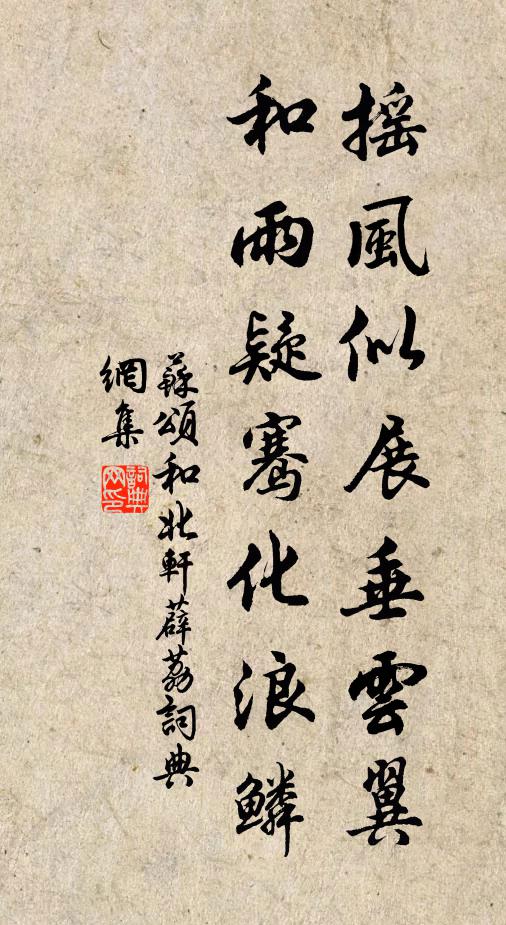 搖風似展垂雲翼
和雨疑騫化浪鱗
蘇頌和北軒薜荔詞典
網集
詞典網印